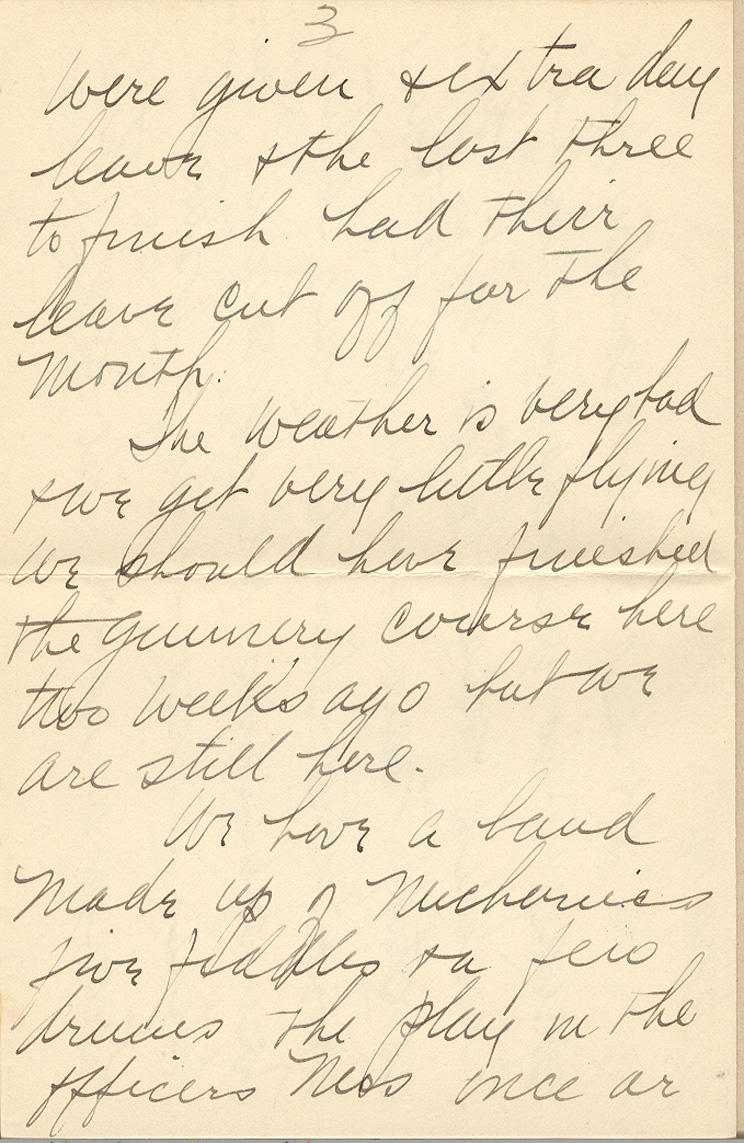 3
were given & extra day
leave & the last three
to finish had their
leave cut off for the
month.
The weather is very bad
& we get very little flying
we should have finished
the gunnery course here
two weeks ago but we
are still here.
We have a band
made up of Mechanics
five fiddles & a few
drums the play in the
officers Mess once or